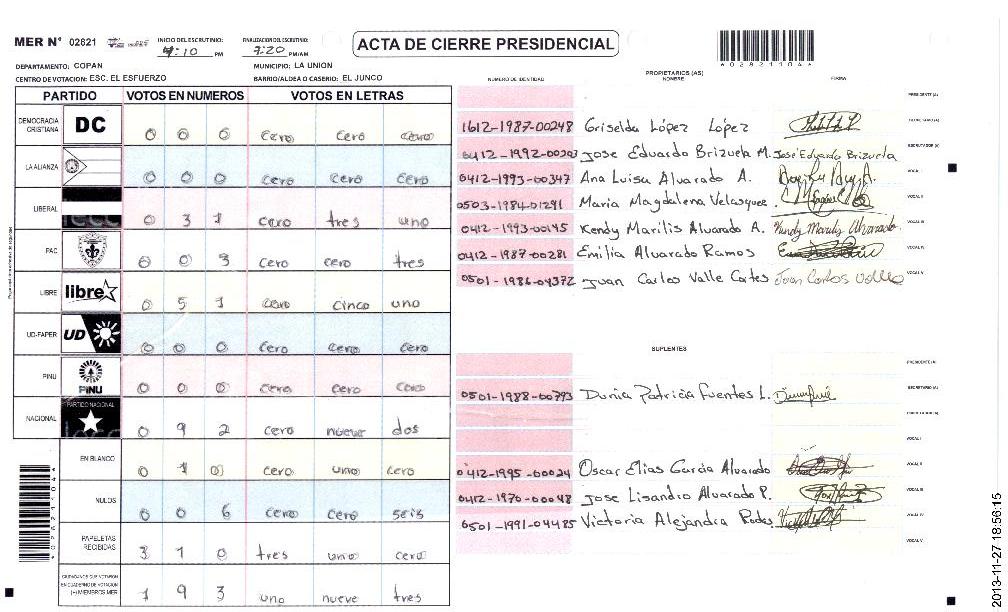 MER N° 02821 INICIO DEL ESCRUTINIO: 4:10 PM FINALIZACIÓN DEL ESCRUTINIO: 7:20 PM/AM
ACTA DE CIERRE PRESIDENCIAL
DEPARTAMENTO: COPAN MUNICIPIO: LA UNION
CENTRO DE VOTACION: ESC. EL ESFUERZO BARRIO/ALDEA O CASERIO: EL JUNCO
PARTIDO VOTOS EN NUMEROS VOTOS EN LETRAS
DEMOCRACIA CRISTIANA DC 0 0 0 cero cero cero
LA ALIANZA 0 0 0 cero cero cero
LIBERAL 0 3 1 cero tres uno
PAC 0 0 3 cero cero tres
LIBRE libre 0 5 1 cero cinco uno
UD-FAPER UD 0 0 0 cero cero cero
PINU PINU 0 0 0 cero cero cero
NACIONAL PARTIDO NACIONAL 0 9 2 cero nueve dos
EN BLANCO 0 1 0 cero uno cero
NULOS 0 0 6 cero cero seis
PAPELETAS RECIBIDAS 3 1 0 tres uno cero
CIUDADANOS QUE VOTARON EN CUADERNO DE VOTACION (+) MIEMBROS MER 1 9 3 uno nueve tres
NUMERO DE IDENTIDAD PROPIETARIOS (AS) NOMBRE FIRMA
PRESIDENTE (A)
1612-1987-00248 Griselda López López SECRETARIO (A)
0412-1992-00203 Jose Eduardo Brizuela M. José Eduardo Brizuela ESCRUTADOR (A)
0412-1993-00347 Ana Luisa Alvarado A. VOCAL I
0503-1984-01291 Maria Magdalena Velasquez VOCAL II
0412-1993-00145 Kendy Marilis Alvarado A. Kendy Marilis Alvarado VOCAL III
0412-1987-00281 Emilia Alvarado Ramos VOCAL IV
0501-1986-04372 Juan Carlos Valle Cortes Juan Carlos Valle VOCAL V
SUPLENTES
PRESIDENTE (A)
0501-1988-00793 Dunia Patricia Fuentes L. SECRETARIO (A)
ESCRUTADOR (A)
VOCAL I
0412-1995-00024 Oscar Elias Garcia Alvarado VOCAL II
0412-1970-00048 Jose Lisandro Alvarado P. VOCAL III
0501-1991-04485 Victoria Alejandra Rodas VOCAL IV
VOCAL V
2013-11-27 18:56:15